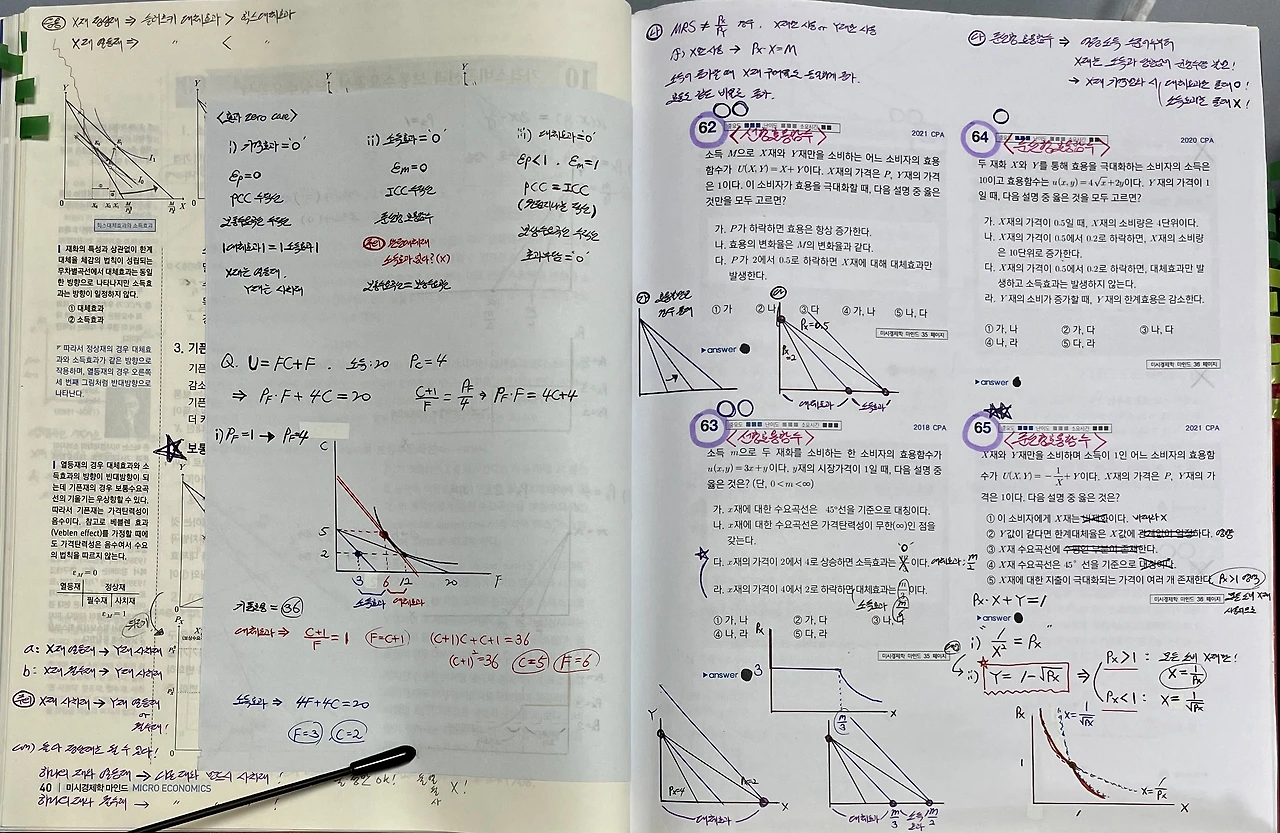 X재 정상재 ⇒ 슬러스키 대체효과 > 힉스대체효과
X재 열등재 ⇒ 〃 < 〃
힉스대체효과와 소득효과
재화의 특성과 상관없이 한계
대체율 체감의 법칙이 성립되는
무차별곡선에서 대체효과는 동일
한 방향으로 나타나지만 소득효
과는 방향이 일정하지 않다.
① 대체효과
② 소득효과
따라서 정상재의 경우 대체효
과와 소득효과가 같은 방향으로
작용하며, 열등재의 경우 오른쪽
세 번째 그림처럼 반대방향으로
나타난다.
열등재의 경우 대체효과와 소
득효과의 방향이 반대방향이 되
는데 기펜재의 경우 보통수요곡
선의 기울기는 우상향할 수 있다.
따라서 기펜재는 가격탄력성이
음수이다. 참고로 베블렌 효과
(Veblen effect)를 가정할 때에
도 가격탄력성은 음수여서 수요
의 법칙을 따르지 않는다.
εM=0
열등재 정상재
필수재 사치재
εM=1
3. 기펜
보통
a: X재 열등재 → Y재 사치재
b: X재 필수재 → Y재 사치재
주의 X재 사치재 → Y재 열등재
or
필수재!
com) 둘다 정상재는 될 수 있다!
40 | 미시경제학 마인드 MICRO ECONOMICS
<효과 zero case>
i) 가격효과='0'
εp=0
PCC 수직선
보통수요곡선 수직선
|대체효과| = |소득효과|
X재는 열등재.
Y재는 사치재
ii) 소득효과='0'
εm=0
ICC 수직선
준선형 효용함수
소득효과 없다? (X)
보통수요곡선=보상수요곡선
iii) 대체효과='0'
εp<1. εm=1
PCC = ICC
(원점지나는 직선)
보상수요곡선 수직선
초과부담='0'
Q. U=FC+F . 소득:20 Pc=4
⇒ PF·F + 4C = 20 C+1/F = PF/4 → PF·F = 4C+4
i) PF=1 → PF=4
C
5
2
3 6 12 20 F
소득효과 대체효과
기존효용=36
대체효과 ⇒ C+1/F = 1 F=C+1 (C+1)C + C+1 = 36
(C+1)²=36 C=5 F=6
소득효과 ⇒ 4F+4C=20
F=3 C=2
MRS ≠ Px/Py 경우, X재만 사용 or Y재만 사용
if) X재만 사용 → Px·X=M
62
중요도 난이도 소요시간
2021 CPA
<선형효용함수>
소득 M으로 X재와 Y재만을 소비하는 어느 소비자의 효용
함수가 U(X,Y)=X+Y이다. X재의 가격은 P, Y재의 가격
은 1이다. 이 소비자가 효용을 극대화할 때, 다음 설명 중 옳은
것만을 모두 고르면?
가. P가 하락하면 효용은 항상 증가한다.
나. 효용의 변화율은 M의 변화율과 같다.
다. P가 2에서 0.5로 하락하면 X재에 대해 대체효과만
발생한다.
① 가 ② 나 ③ 다 ④ 가, 나 ⑤ 나, 다
미시경제학 마인드 35 페이지
▶answer
Px=0.5
Px=2
대체효과 소득효과
63
중요도 난이도 소요시간
2018 CPA
<선형효용함수>
소득 m으로 두 재화를 소비하는 한 소비자의 효용함수가
u(x,y)=3x+y이다. y재의 시장가격이 1일 때, 다음 설명 중
옳은 것은? (단, 0<m<∞)
가. x재에 대한 수요곡선은 45°선을 기준으로 대칭이다.
나. x재에 대한 수요곡선은 가격탄력성이 무한(∞)인 점을
갖는다.
다. x재의 가격이 2에서 4로 상승하면 소득효과는 이다. 대체효과: m/2
라. x재의 가격이 4에서 2로 하락하면 대체효과는 m/3이다.
소득효과 m/6
① 가, 나 ② 가, 다 ③ 나, 다
④ 나, 라 ⑤ 다, 라
미시경제학 마인드 35 페이지
▶answer
Px
3
m/3 X
Y
Px=4 Px=2 X
대체효과
m/3 m/2 X
대체효과 소득효과
준선형 효용함수 ⇒ 일정소득 수준이상부터
X재는 소득과 관련없이 일정수량 소비!
→ X재 가격변화 시 대체효과만 존재 O!
소득효과는 존재 X!
64
중요도 난이도 소요시간
2020 CPA
<준선형효용함수>
두 재화 X와 Y를 통해 효용을 극대화하는 소비자의 소득은
10이고 효용함수는 u(x,y)=4√x+2y이다. Y재의 가격이 1
일 때, 다음 설명 중 옳은 것을 모두 고르면?
가. X재의 가격이 0.5일 때, X재의 소비량은 4단위이다.
나. X재의 가격이 0.5에서 0.2로 하락하면, X재의 소비량
은 10단위로 증가한다.
다. X재의 가격이 0.5에서 0.2로 하락하면, 대체효과만 발
생하고 소득효과는 발생하지 않는다.
라. Y재의 소비가 증가할 때, Y재의 한계효용은 감소한다.
① 가, 나 ② 가, 다 ③ 나, 다
④ 나, 라 ⑤ 다, 라
미시경제학 마인드 36 페이지
▶answer
65
중요도 난이도 소요시간
2021 CPA
<준선형효용함수>
X재와 Y재만을 소비하며 소득이 1인 어느 소비자의 효용함
수가 U(X,Y)=-1/X+Y이다. X재의 가격은 P, Y재의 가
격은 1이다. 다음 설명 중 옳은 것은?
① 이 소비자에게 X재는 비재화이다. 비재화X
② Y값이 같다면 한계대체율은 X값에 관계없이 일정하다.
③ X재 수요곡선에 수평인 부분이 존재한다.
④ X재 수요곡선은 45° 선을 기준으로 대칭이다.
⑤ X재에 대한 지출이 극대화되는 가격이 여러 개 존재한다. Px>1 영역
미시경제학 마인드 36 페이지
Px·X+Y=1
▶answer
i) 1/X² = Px
ii) Y = 1-√Px ⇒
Px>1 : 모든 소비 X재만!
X=1/Px
Px<1 : X=1/√Px
Px
X=1/√Px
1
X=1/Px
1 X